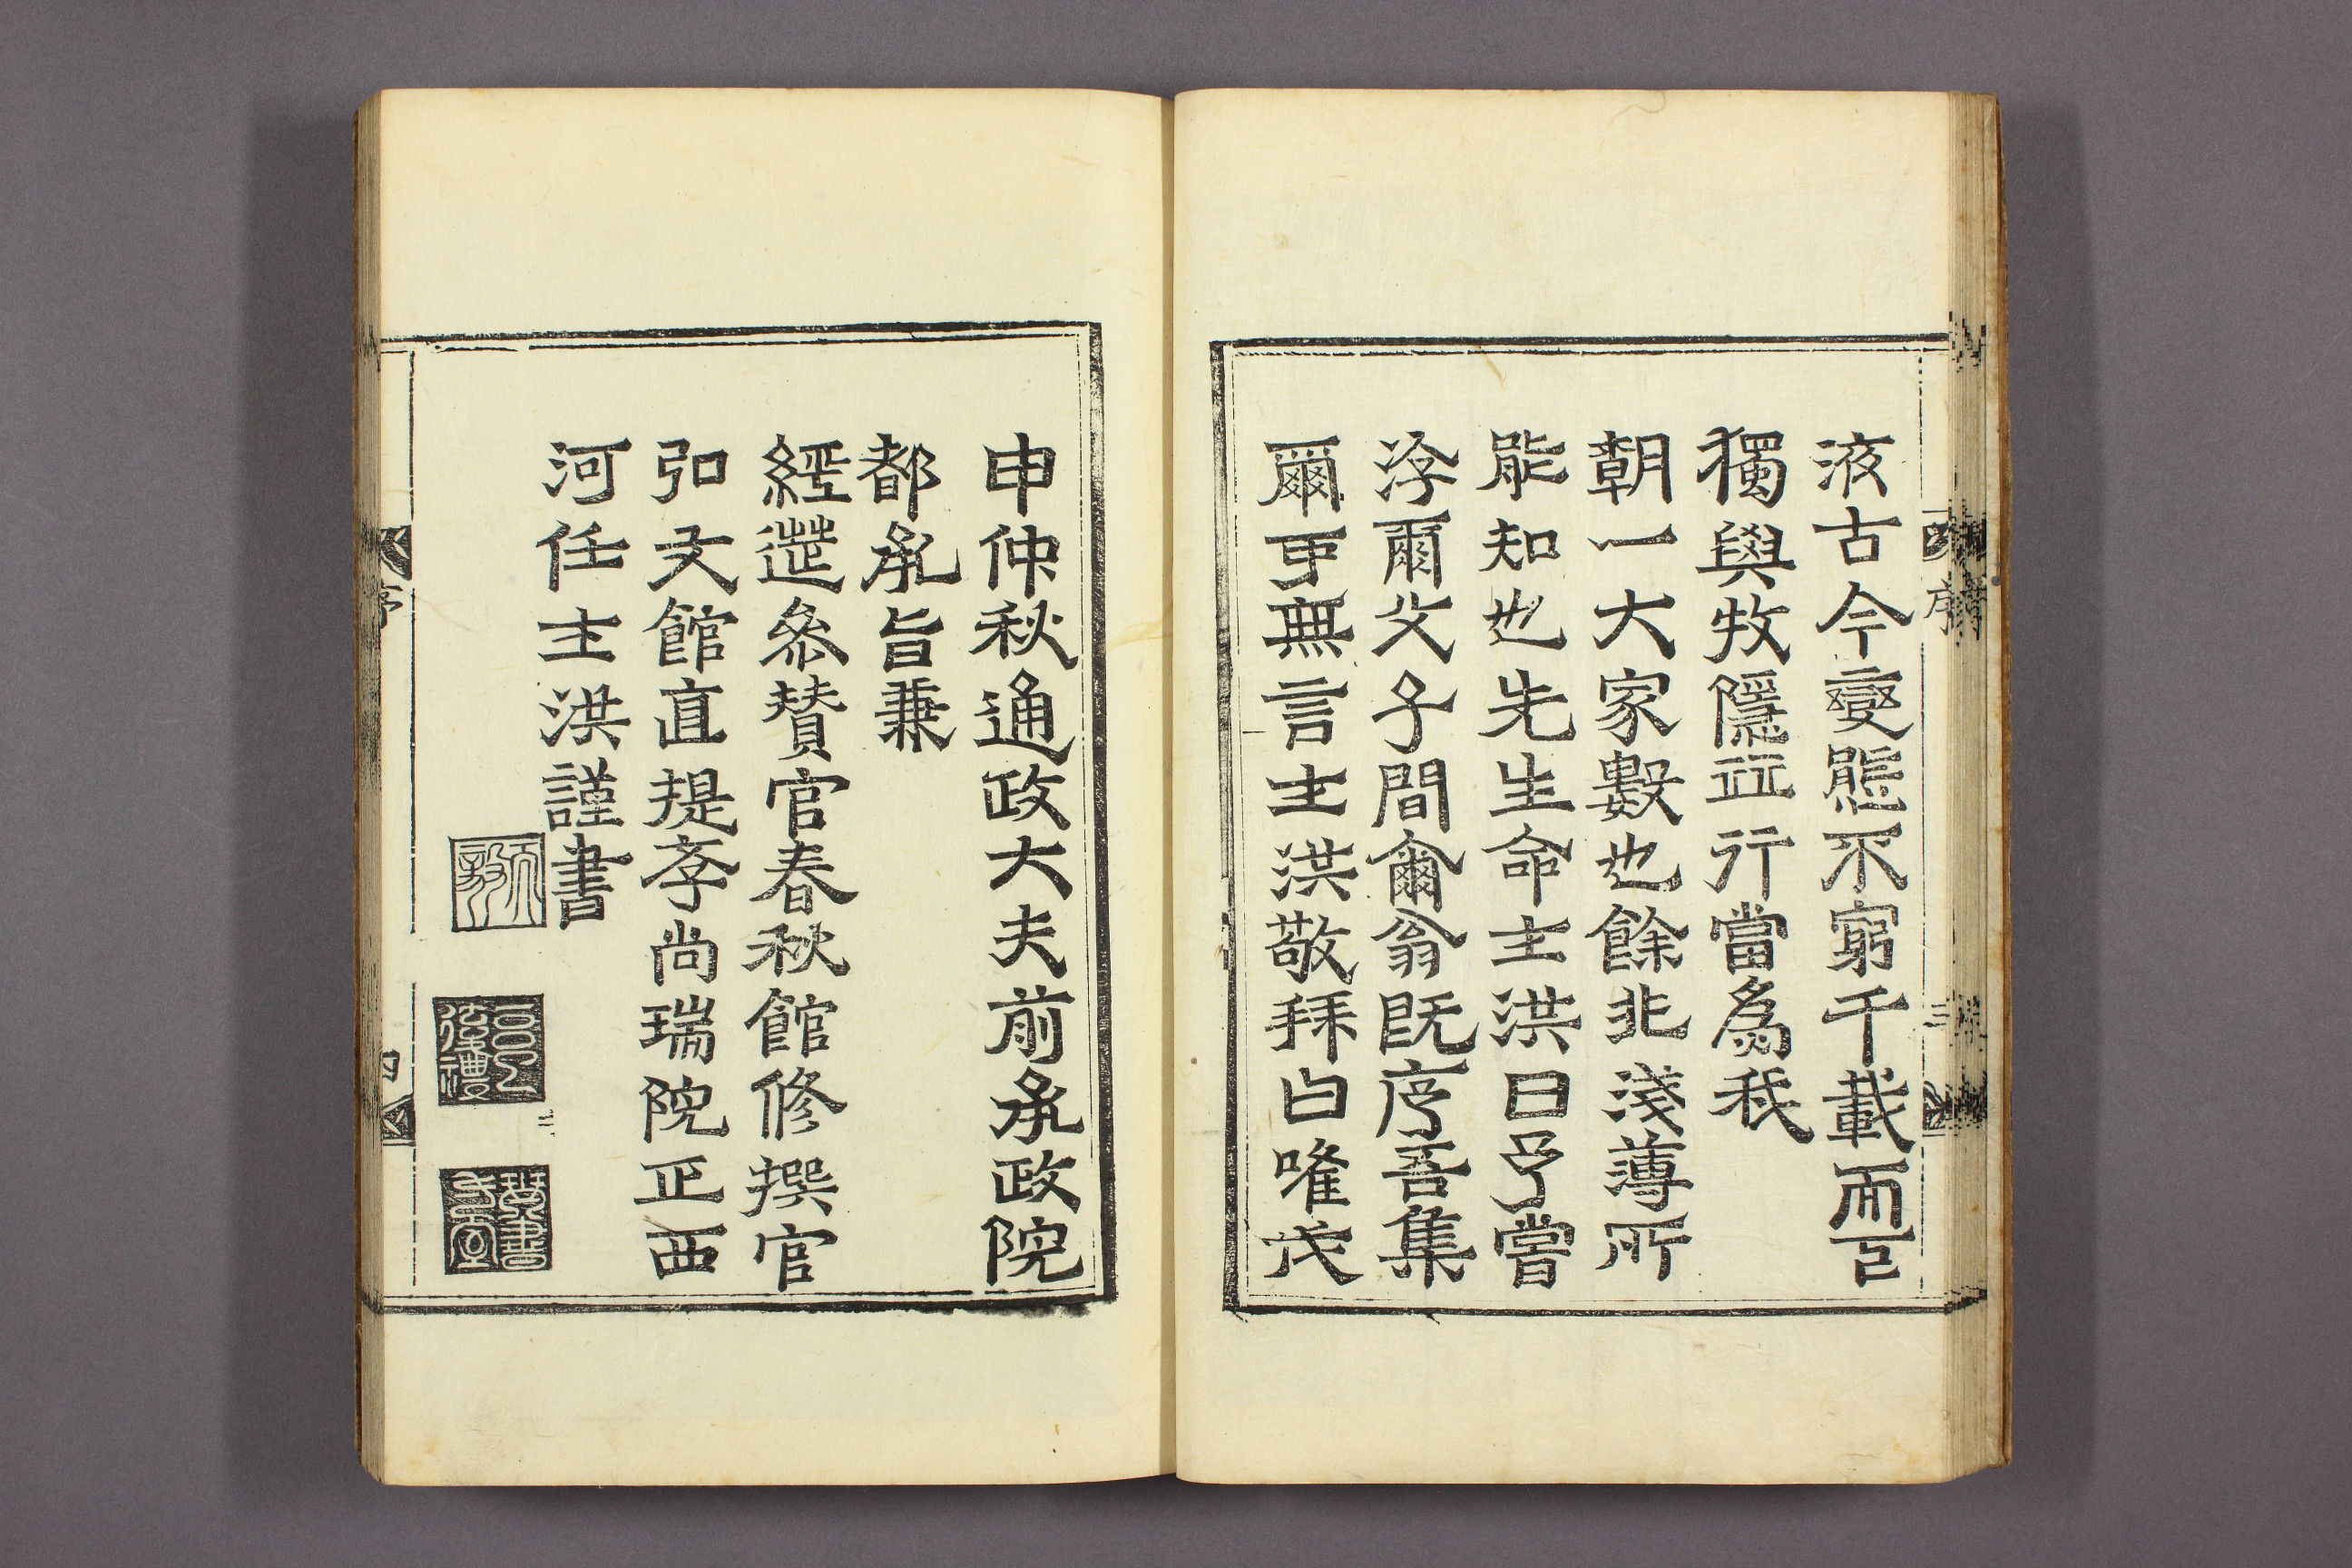 液古今變態不窮千載而下
獨與牧隱竝行當爲我
朝一大家數也餘非淺薄所
能知也先生命主洪曰予嘗
浮爾父子間爾翁旣序吾集
爾可無言主洪敬拜曰唯戊
申仲秋通政大夫前承政院
都承旨兼
經筵參贊官春秋館修撰官
弘文館直提學尚瑞院正西
河任士洪謹書
序
三
序
四